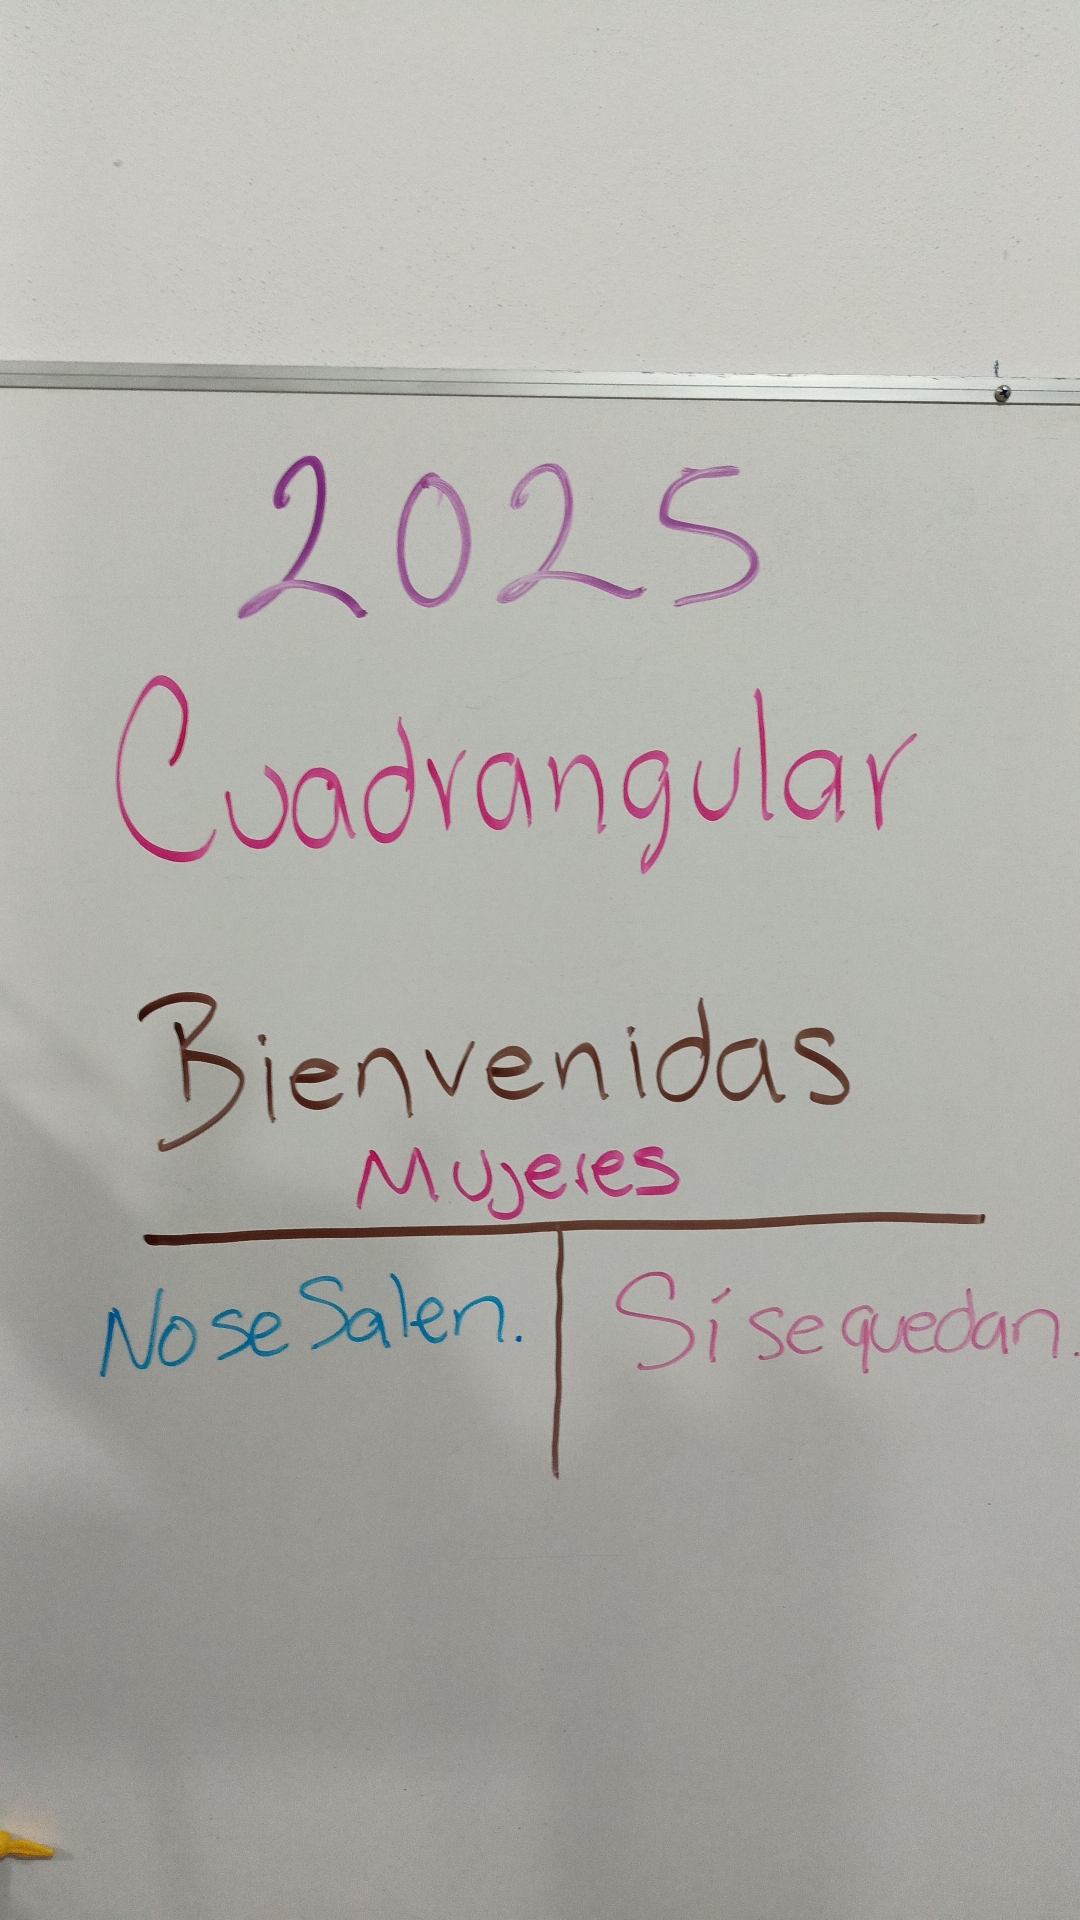 2025
Cuadrangular
Bienvenidas
Mujeres
No se Salen.
Sí se quedan.